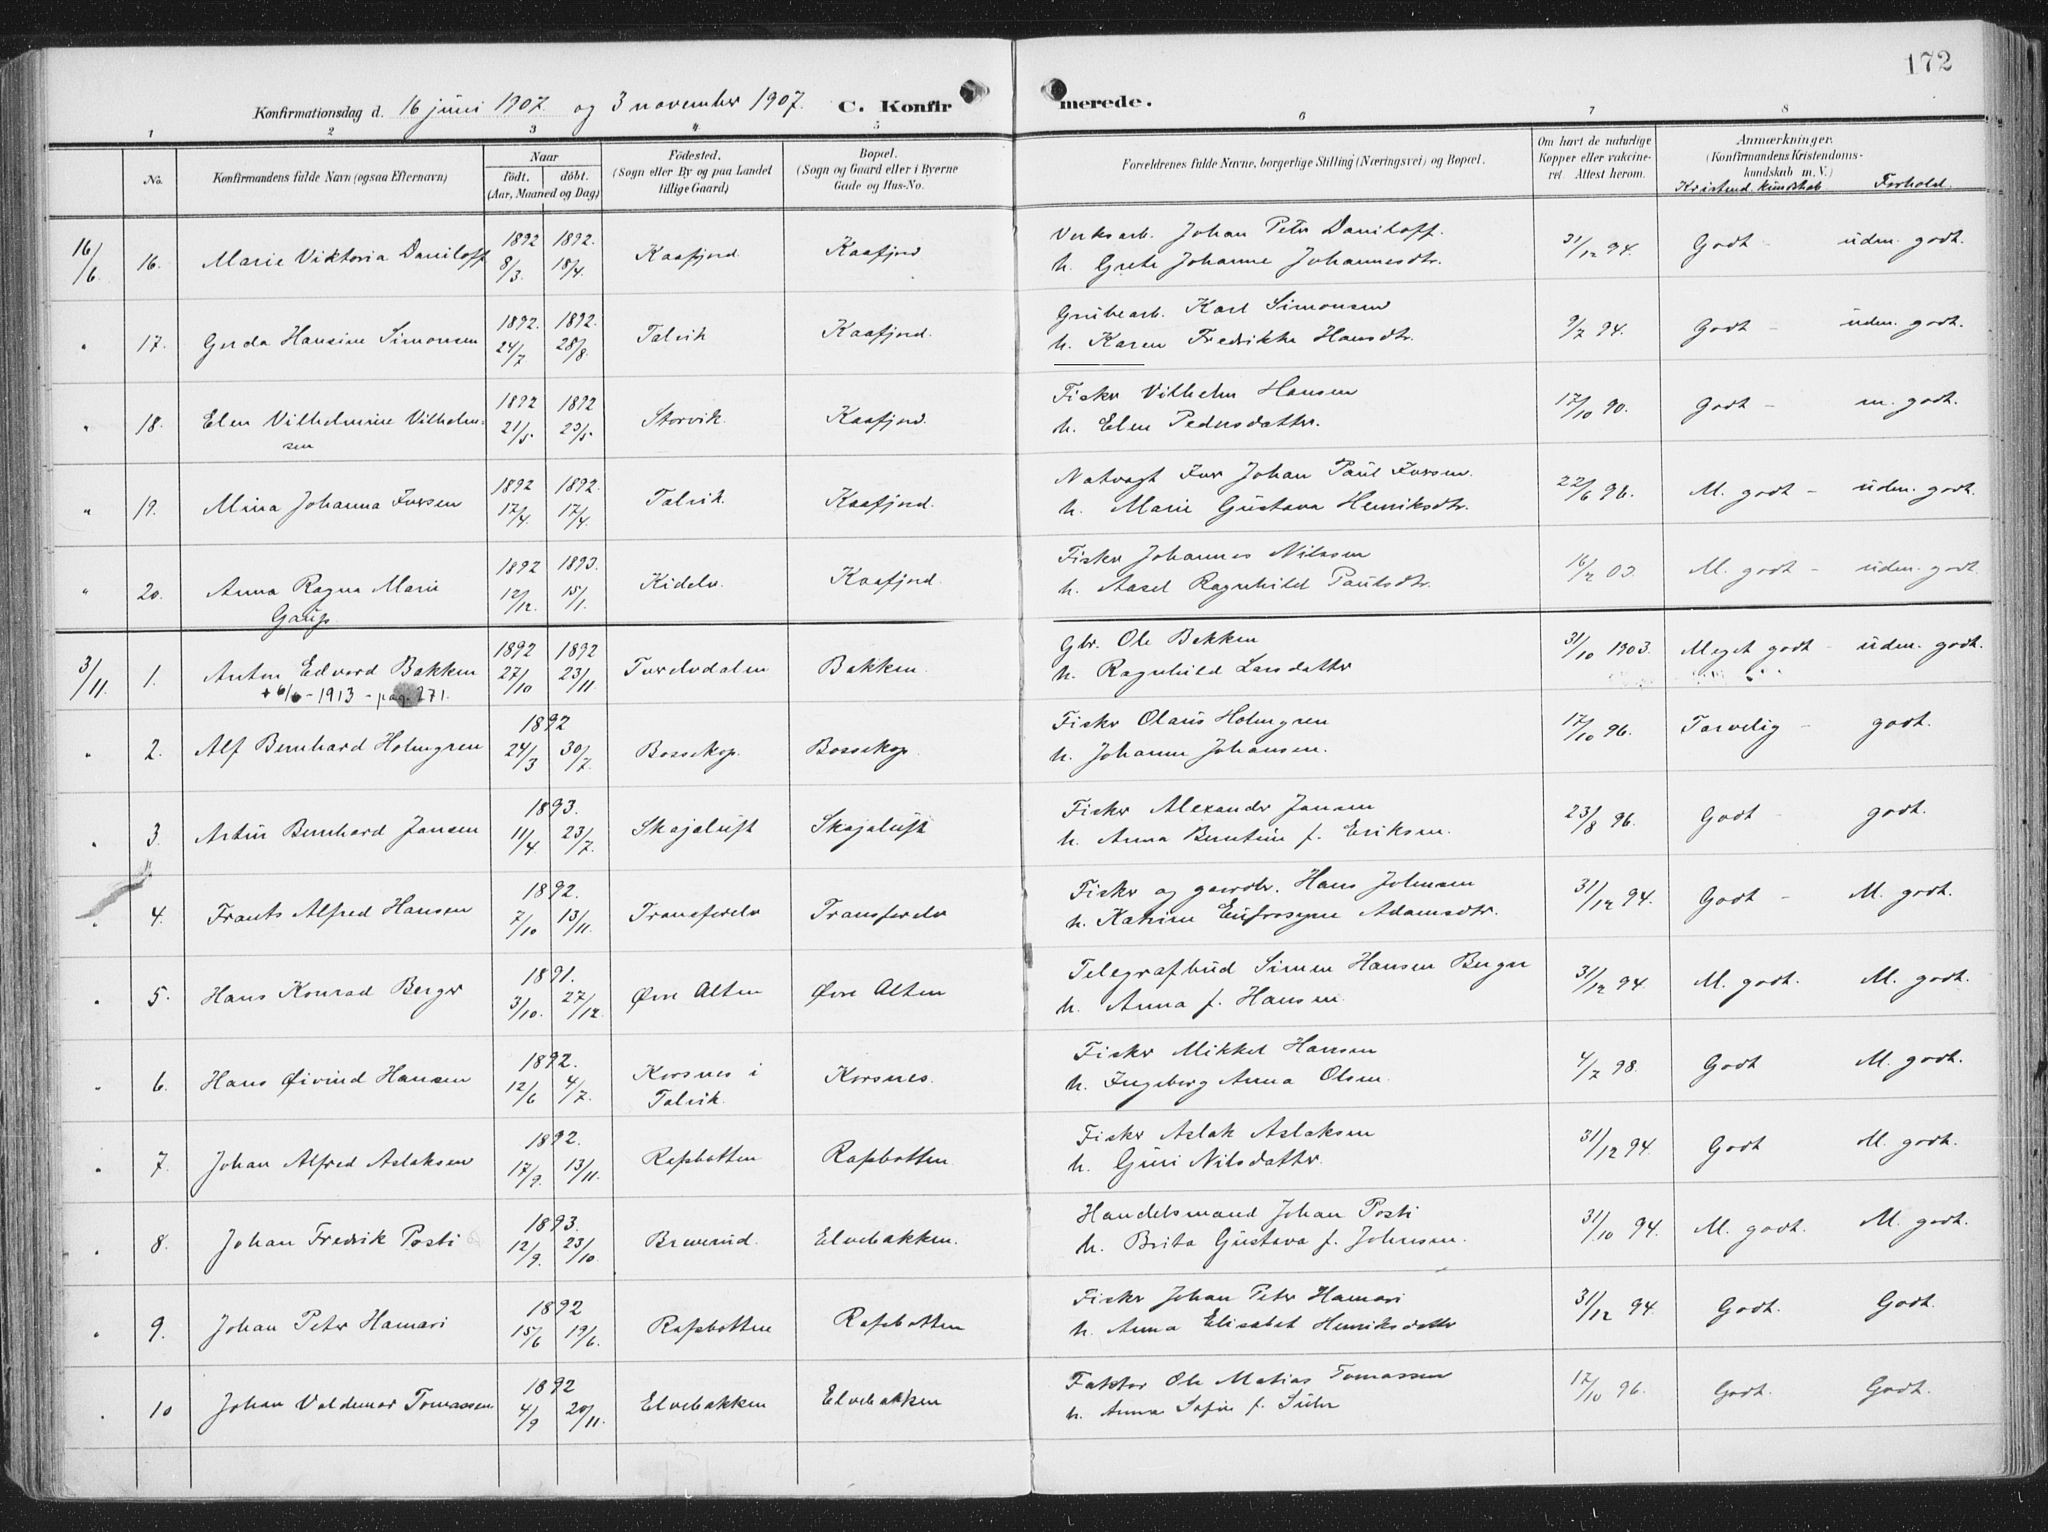 172
Konfirmationsdag d. 16 juni 1907. og 3 november 1907. C. Konfirmerede.
1 2 3 4 5 6 7 8
No. Konfirmandens fulde Navn (ogsaa Efternavn) Naar født. døbt. (Aar, Maaned og Dag) Fødested. (Sogn eller By og paa Landet tillige Gaard) Bopæl. (Sogn og Gaard eller i Byerne Gade og Hus-No. Forældrenes fulde Navne, borgerlige Stilling (Næringsvei) og Bopæl. Om havt de naturlige Kopper eller vakcineret. Attest herom. Anmærkninger. (Konfirmandens Kristendomskundskab m. V.)
Kristend. kundskab Forhold.
16/6 16. Marie Viktoria Daniloff 1892 8/3. 1892. 18/4. Kaafjord Kaafjord Verksarb. Johan Peter Daniloff. 31/12 94. Godt - uden. godt.
h. Grete Johanne Johannesdtr.
" 17. Gerda Hansine Simonsen 1892. 24/7 1892. 28/8. Talvik Kaafjord. Grubearb. Karl Simonsen 9/7 94. Godt - uden. godt.
h. Karen Fredrikke Hansdtr.
" 18. Elen Vilhelmine Vilhelmsen 1892 21/5 1892 23/5 Storvik. Kaafjord. Fisker Vilhelm Hansen 17/10 90. Godt - m. godt.
h. Elen Pedersdatter.
" 19. Mina Johanna Iversen 1892 17/4. 1892. 17/4. Talvik. Kaafjord. Natvagt Iver Johan Paul Iversen. 22/6 96. M. godt - uden. godt.
h. Marie Gustava Henriksdtr.
" 20. Anna Ragna Marie Gaup. 1892 12/12. 1893. 15/1. Kidelv. Kaafjord. Fisker Johannes Nilssen 16/2 03. M. godt - uden. godt.
h. Aasel Ragnhild Paulsdtr.
3/11. 1. Anton Edvard Bakken 1892 27/10 1892 23/11. Tverelvdalen Bakken. Gbr. Ole Bakken 31/10 1903. Meget godt - uden. godt.
+ 6/6 - 1913 - pag. 271. h. Ragnhild Larsdatter
" 2. Alf Bernhard Holmgren 1892 24/3 30/7. Bossekop. Bossekop. Fisker Olaus Holmgren 17/10 96. Tarvelig - godt.
h. Johanne Johansen.
" 3. Artur Bernhard Jansen 1893. 11/4. 23/7. Skajaluft Skajaluft Fisker Alexander Jansen 23/8 96. Godt - godt.
h. Anna Berntine f. Eriksen.
" 4. Frants Alfred Hansen 1892. 7/10 13/11. Transfarelv Transfarelv Fisker og gaardbr. Hans Johnsen 31/12 94. Godt - M. godt.
h. Katrine Eufrosyne Adamsdtr.
" 5. Hans Konrad Berger 1891. 3/10. 27/12. Øvre Alten Øvre Alten Telegrafbud Simen Hansen Berger 31/12 94. M. godt. M. godt.
h. Anna f. Hansen.
" 6. Hans Øivind Hansen 1892. 12/6 4/7. Korsnes i Talvik. Korsnes. Fisker Mikkel Hansen 4/7 98. Godt M. godt.
h. Ingeborg Anna Olsen.
" 7. Johan Alfred Aslaksen 1892. 17/9. 13/11. Rafsbotten Rafsbotten Fisker Aslak Aslaksen 31/12 94. Godt M. godt.
h. Guri Nilsdatter.
" 8. Johan Fredrik Posti 1893. 12/9. 23/10. Breverud. Elvebakken. Handelsmand Johan Posti 31/10 94. M. godt. M. godt.
h. Brita Gustava f. Johnsen.
" 9. Johan Peter Hamari 1892 15/6 19/6. Rafsbotten Rafsbotten Fisker Johan Peter Hamari 31/12 94. Godt. Godt.
h. Anna Elisabet Henriksdatter
" 10 Johan Valdemar Tomassen 1892 4/9 20/11. Elvebakken Elvebakken Faktor Ole Matias Tomassen 17/10 96. Godt. Godt.
h. Anna Sofie f. Suhr